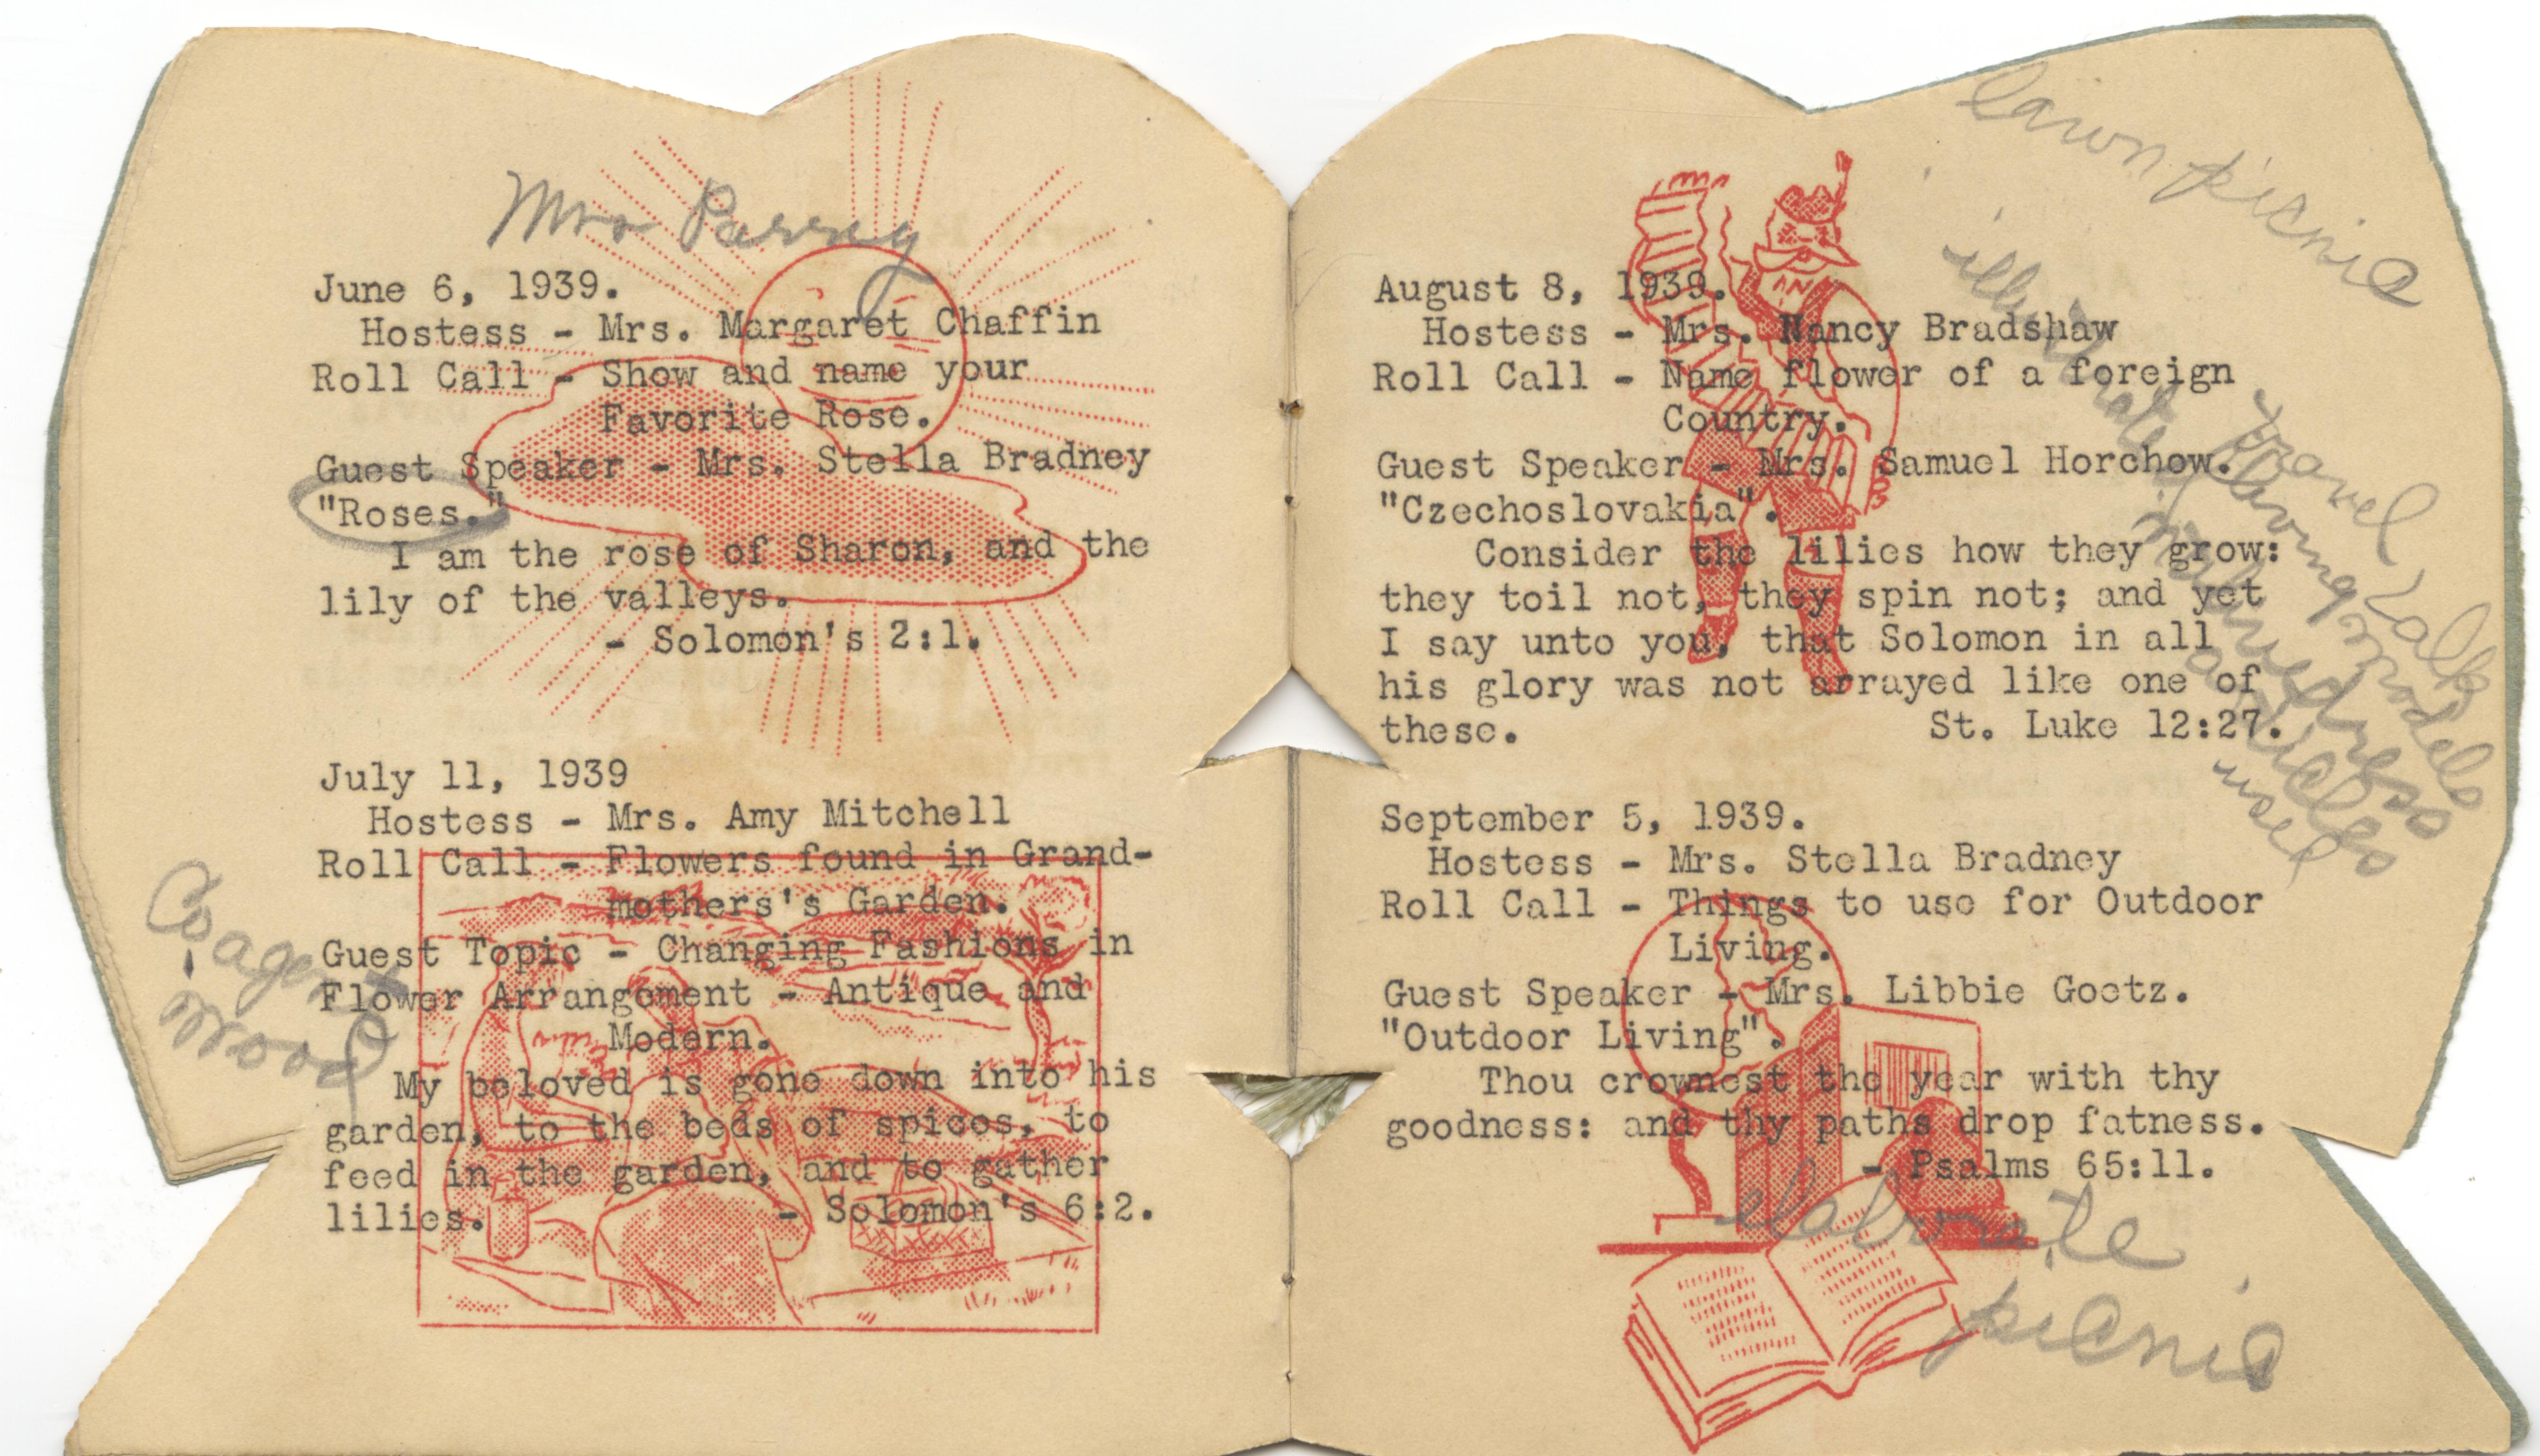 Mrs Parrey
June 6, 1939.
Hostess - Mrs. Margaret Chaffin
Roll Call - Show and name your
Favorite Rose.
Guest Speaker - Mrs. Stella Bradney
"Roses."
I am the rose of Sharon, and the
lily of the valleys.
- Solomon's 2:1.
July 11, 1939
Hostess - Mrs. Amy Mitchell
Roll Call - Flowers found in Grand-
mothers's Garden.
Guest Topic - Changing Fashions in
Flower Arrangement - Antique and
Modern.
My beloved is gone down into his
garden, to the beds of spices, to
feed in the garden, and to gather
lilies. - Solomon's 6:2.
Co agent
Wood
lawn picnic
August 8, 1939.
Hostess - Mrs. Nancy Bradshaw
Roll Call - Name flower of a foreign
Country.
Guest Speaker - Mrs. Samuel Horchow.
"Czechoslovakia".
Consider the lilies how they grow:
they toil not, they spin not; and yet
I say unto you, that Solomon in all
his glory was not arrayed like one of
these. St. Luke 12:27.
Travel talk
illustrated living models
native dress
articles
used
September 5, 1939.
Hostess - Mrs. Stella Bradney
Roll Call - Things to use for Outdoor
Living.
Guest Speaker - Mrs. Libbie Goetz.
"Outdoor Living".
Thou crownest the year with thy
goodness: and thy paths drop fatness.
- Psalms 65:11.
elaborate
picnic